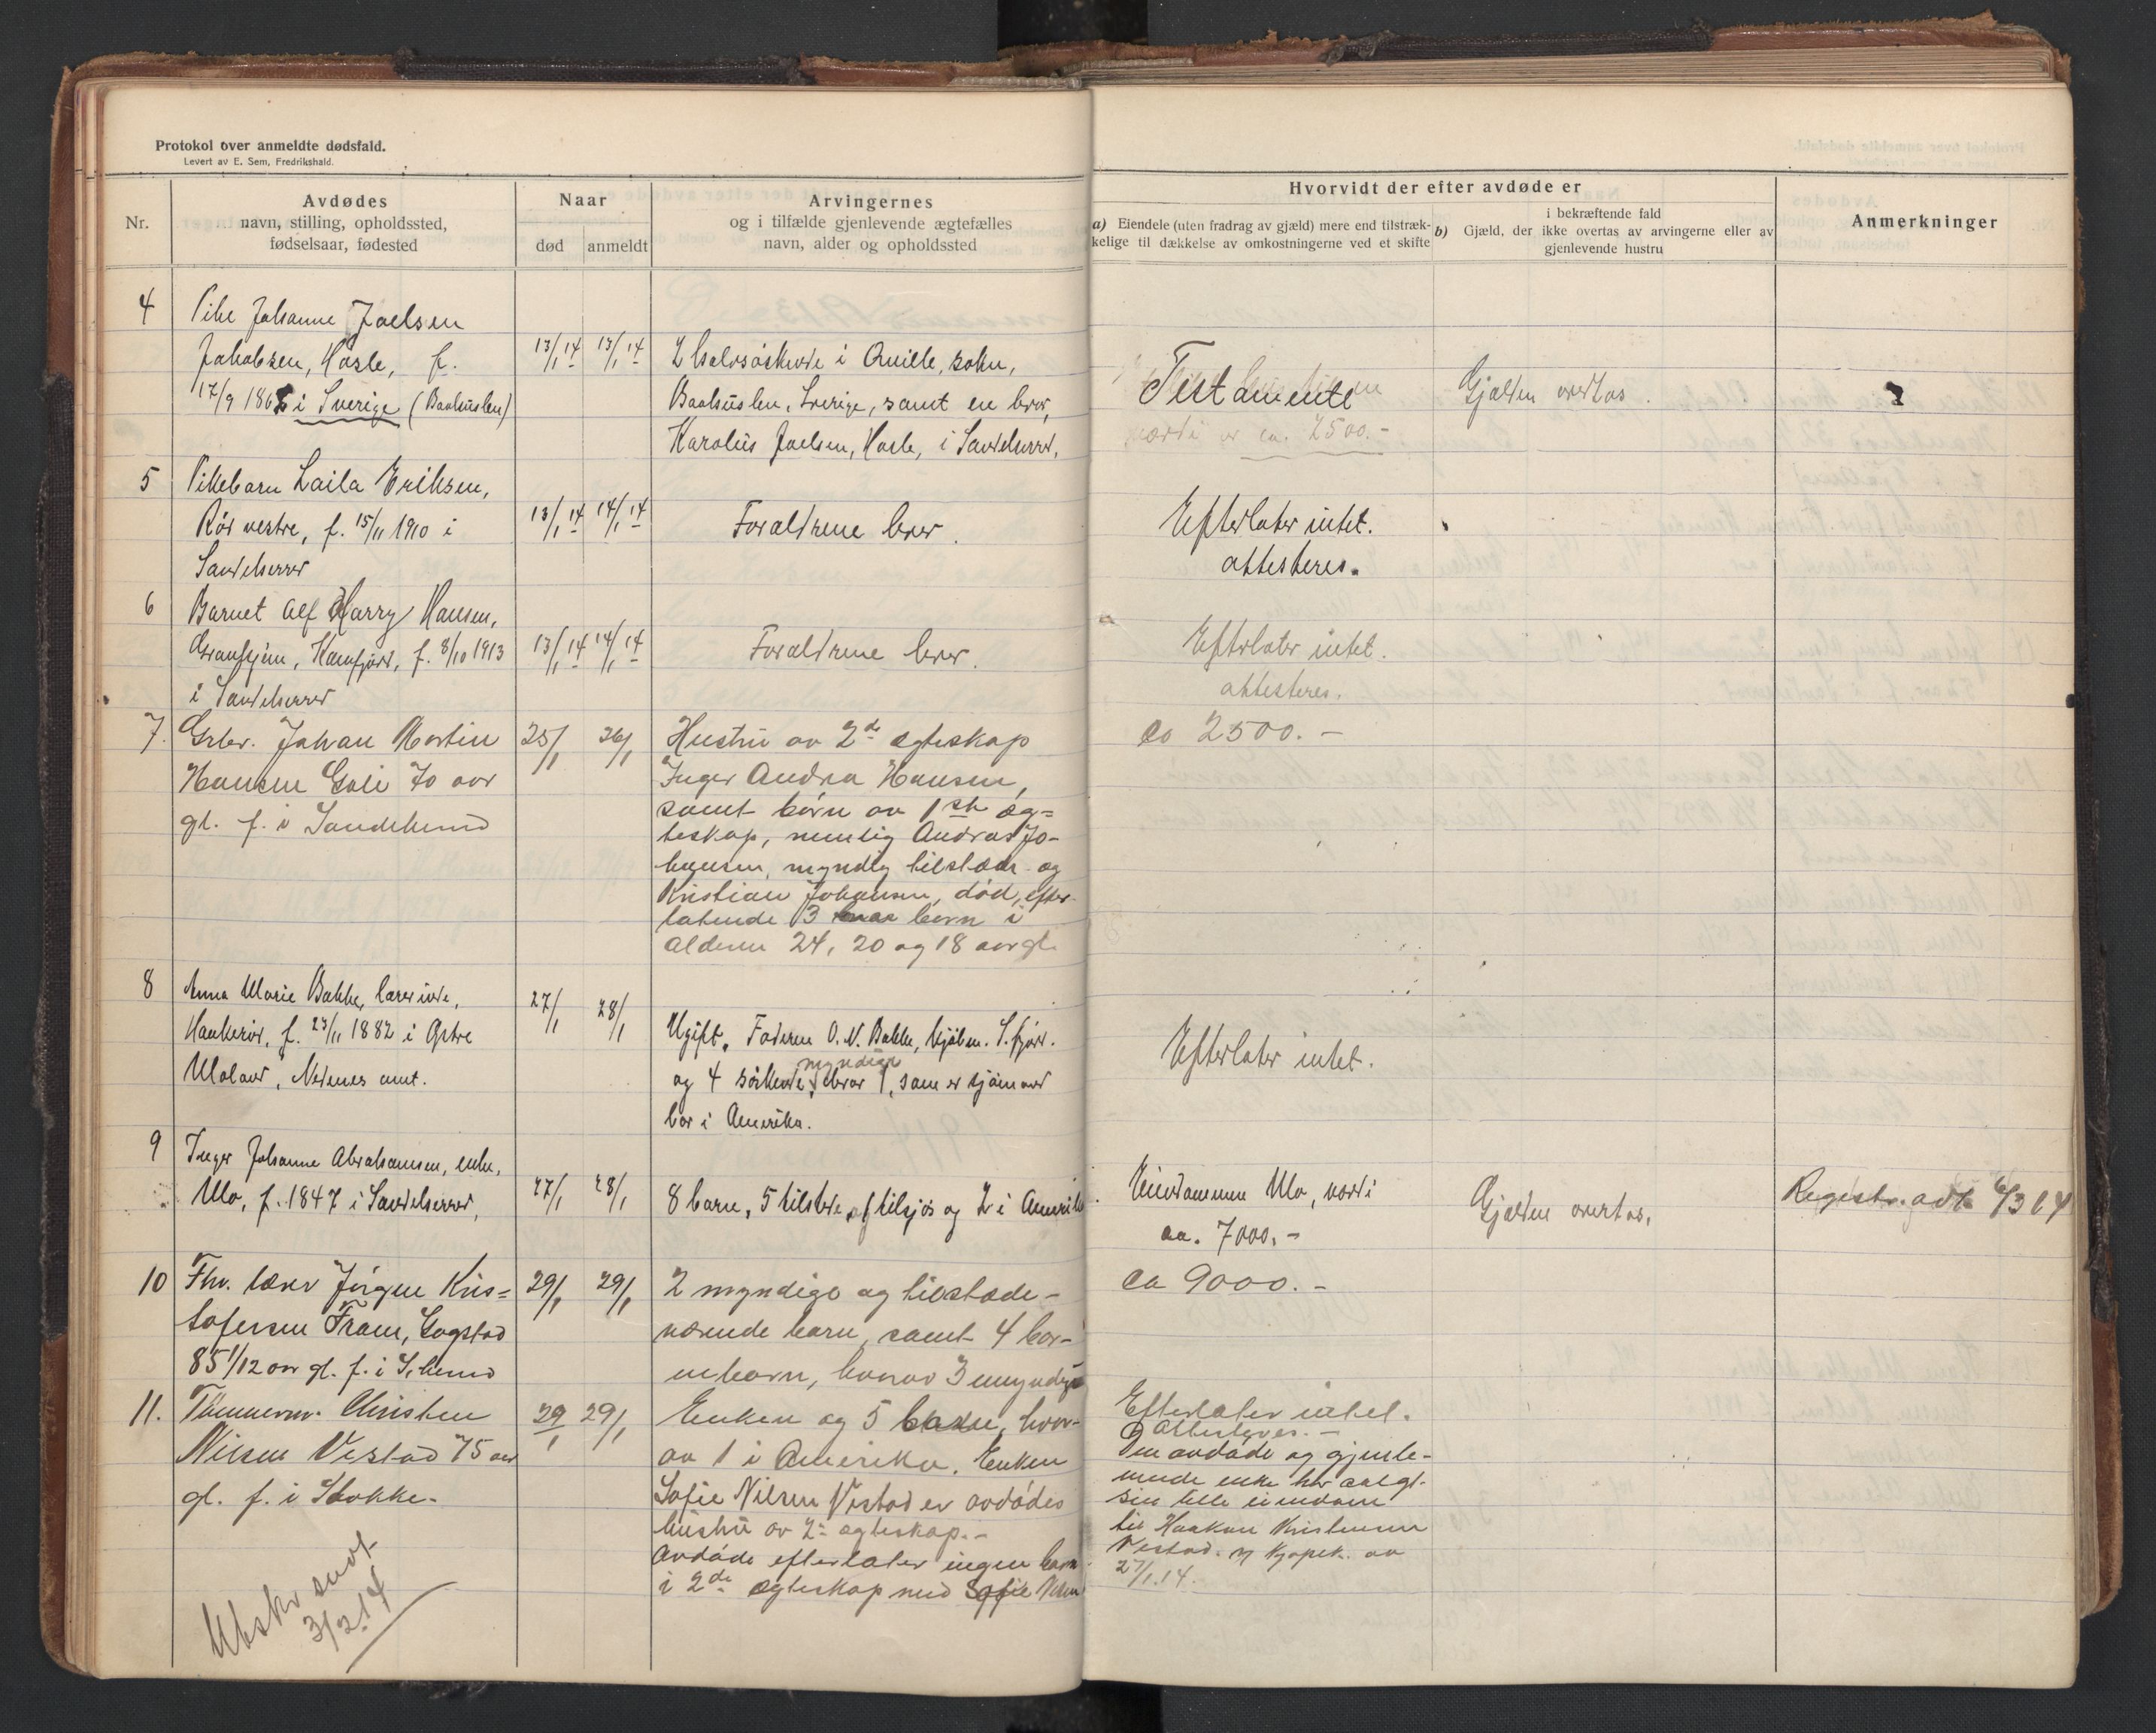 Protokol over anmeldte dødsfald.
Levert av E. Sem, Fredrikshald.
Nr.
Avdødes
navn, stilling, opholdssted,
fødselsaar, fødested
Naar
død
anmeldt
Arvingernes
og i tilfælde gjenlevende ægtefælles
navn, alder og opholdssted
Hvorvidt der efter avdøde er
a) Eiendele (uten fradrag av gjæld) mere end tilstræk-
kelige til dækkelse av omkostningerne ved et skifte
i bekræftende fald
b) Gjæld, der ikke overtas av arvingerne eller av
gjenlevende hustru
Anmerkninger
4
Pike Johanne Joelsen
Jakobsen, Hasle, f.
17/9 186 i Sverige (Baahuslen)
13/1 14
13/1 14
2 halvsøskende i Qville, sokn,
Baahuslen, Sverige, samt en bror,
Karolius Joelsen, Hasle, i Sandeherred.
Testamente
værdi er ca. 2500.-
Gjælden overtas.
5
Pikebarn Laila Eriksen,
Rød vestre, f. 15/11 1910 i
Sandeherred
13/1 14
14/1 14
Forældrene lever.
Efterlater intet.
attesteres.
6
Barnet Alf Harry Hansen,
Framnes, f. 8/10 1913
i Sandeherred
13/1 14
14/1 14
Forældrene lever.
Efterlater intet.
attesteres.
7.
Grbr. Johan Martin
Hansen Gali 70 aar
gl. f. i Sandeherred
25/1
26/1
Hustru av 2de ægteskap
Inger Andrea Hansen,
samt børn av 1ste æg=
teskap, nemlig Andreas Jo-
hansen, myndig tilstæde og
Kristian Johansen, død, efter-
latende 3 børn i
alderen 24, 20 og 18 aar gl.
ca 2500.-
8
Anna Marie Bakke, lærerinde,
Haukerød, f. 23/11 1882 i Østre
Moland, Nedenes amt.
27/1
28/1
Ugift. Faderen O. N. Bakke, kjøbm. S.fjord.
og 4 søskende, myndige, hvorav 1, som er sjømand
bor i Amerika.
Efterlater intet.
9
Inger Johanne Abrahamsen, enke,
Mo, f. 1847 i Sandeherred,
27/1
28/1
8 barn, 5 tilstede, 1 tilsjøs og 2 i Amerika
Eiendommen Mo, værdi
ca. 7000.-
Gjælden overtas.
Registr. avh. 6/3 14
10
Fhv. lærer Jørgen Kris=
tofersen Fram, Gogstad
85 1/12 aar gl. f. i S.herred
29/1
29/1
2 myndige og tilstede-
værende barn, samt 4 bar-
nebarn, hvorav 3 umyndige
ca 9000.-
11.
Tømmerm. Christen
Nilsen Vestad 75 aar
gl. f. i Stokke.
29/1
29/1
Enken og 5 barn, hvor-
av 1 i Amerika. Enken
Sofie Nilsen Vestad er avdødes
hustru av 2. ægteskap.-
Avdøde efterlater ingen barn
i 2de ægteskap med Sofie Nilsen
Efterlater intet.
Attesteres.-
Den avdøde og gjenle-
vende enke har solgt
sin lille eiendom
til Haakon Kristensen
Vestad. kjøpek. av
27/1.14.
Utskr sendt
3/2 14